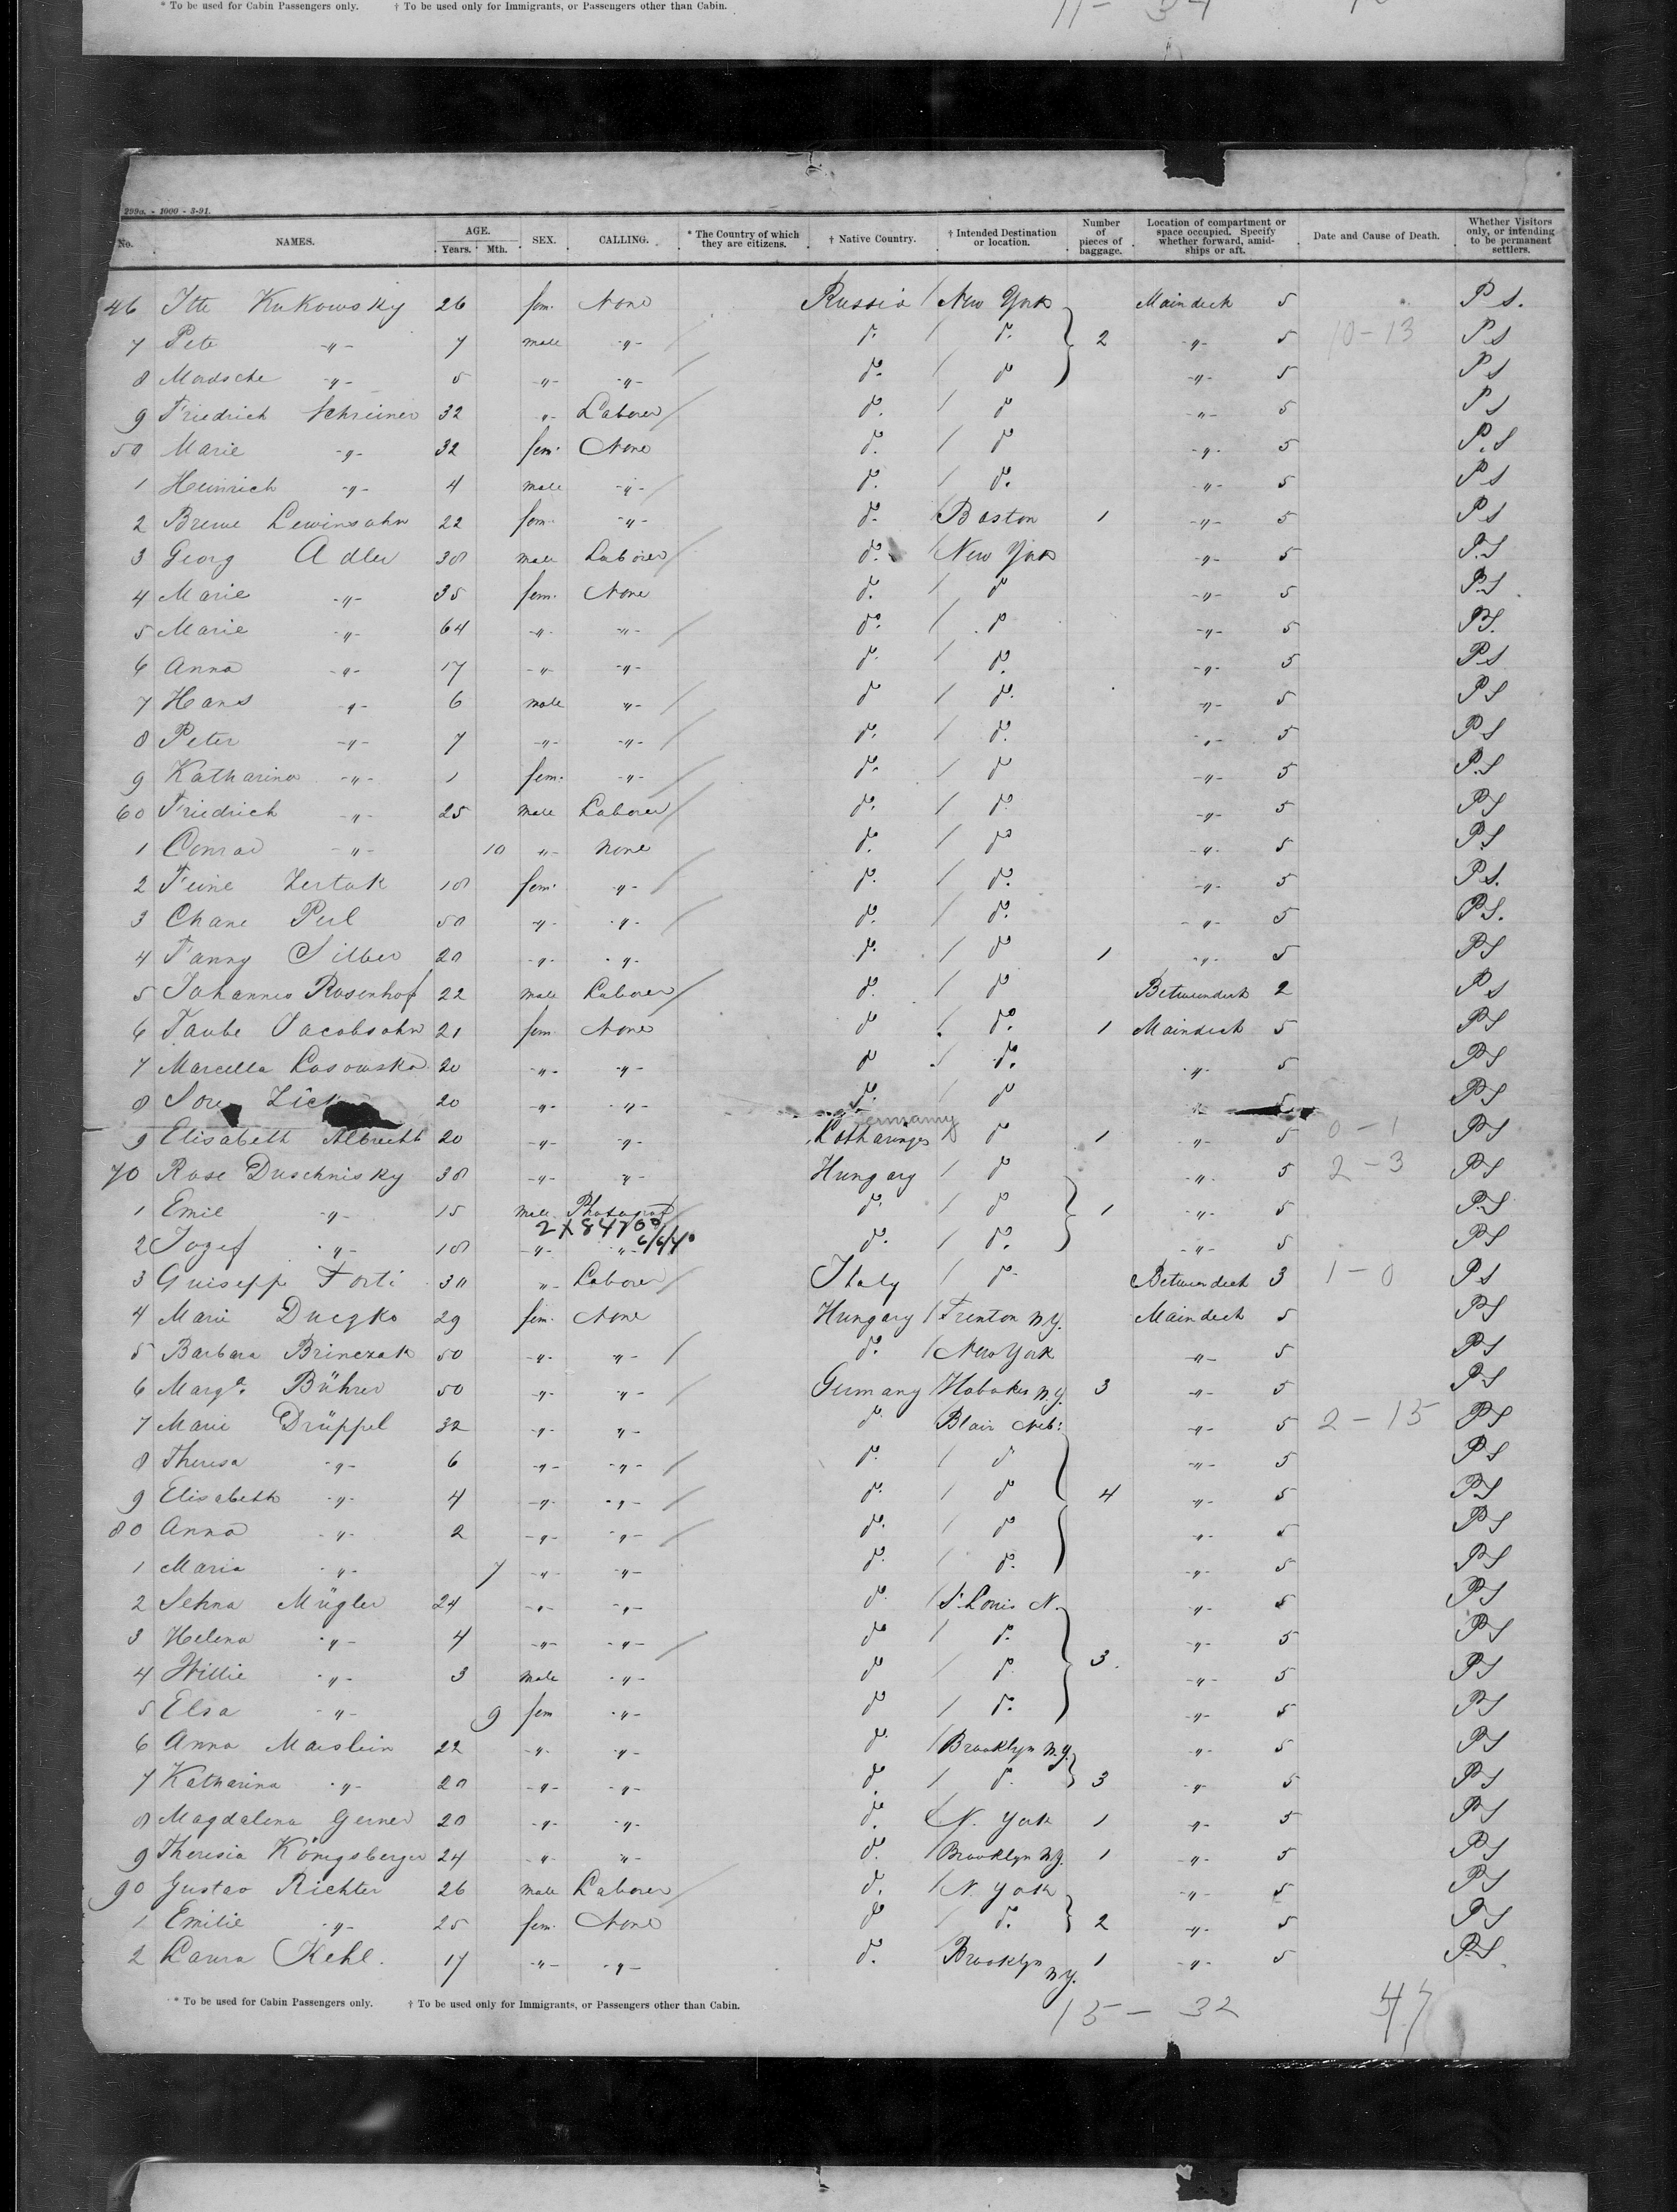 * To be used for Cabin Passengers only. † To be used only for Immigrants, or Passengers other than Cabin.
11 - 34
299a. - 1000 - 3-91.
No. NAMES. AGE. Years. Mth. SEX. CALLING. * The Country of which they are citizens. † Native Country. † Intended Destination or location. Number of pieces of baggage. Location of compartment or space occupied. Specify whether forward, amidships or aft. Date and Cause of Death. Whether Visitors only, or intending to be permanent settlers.
46 Itte Kukowsky 26 fem. None Russia / New York Maindeck 5 P S.
7 Pete -"- 7 male -"- do. / do. 2 -"- 5 10-13 P S
8 Mordsche -"- 5 -"- -"- / do. / do -"- 5 P S
9 Friedrich Schreiner 32 -"- Laborer / do. / do -"- 5 P S
50 Marie -"- 32 fem. None do. / do -"- 5 P. S
1 Heinrich -"- 4 male -"- / do. / do. -"- 5 P S
2 Brewe Lewinsohn 22 fem. -"- do. / Boston 1 -"- 5 P S
3 Georg Adler 38 male Laborer / do. / New York -"- 5 P.S
4 Marie -"- 35 fem. None do. / do -"- 5 P.S
5 Marie -"- 64 -"- -"- / do. / do -"- 5 P S.
6 Anna -"- 17 -"- -"- do. / do. -"- 5 P S
7 Hans -"- 6 male -"- / do / do. -"- 5 P S
8 Peter -"- 7 -"- -"- / do. / do. -"- 5 P S
9 Katharina -"- 1 fem. -"- / do. / do -"- 5 P.S
60 Friedrich -"- 25 male Laborer / do. / do -"- 5 P S
1 Conrad -"- 10 -"- None / do. / do -"- 5 P S
2 Feine Zertak 18 fem. -"- / do. / do. -"- 5 P S.
3 Chane Perl 50 -"- -"- / do. / do. -"- 5 P S.
4 Fanny Silber 20 -"- -"- do. / do 1 -"- 5 P S
5 Johannes Rosenhof 22 male Laborer / do. / do Betweendeck 2 P S
6 Taube Jacobsohn 21 fem None do / do. 1 Maindeck 5 P S
7 Marcella Lasowska 20 -"- -"- do / do. -"- 5 P S
8 20 -"- -"- do. / do 5 P S
Germany
9 Elisabeth Albrecht 20 -"- -"- Lotharinges do 1 -"- 5 0-1 P S
70 Rose Duschnisky 38 -"- -"- Hungary / do -"- 5 2-3 P S
1 Emil -"- 15 male Photograf do. / do 1 -"- 5 P.S
2X84700 6/6/40
2 Jozef -"- 18 -"- -"- do. / do. -"- 5 P S
3 Guisepp Forti 30 -"- Laborer / Italy / do Betweendeck 3 1-0 P S
4 Marie Duczko 29 fem. None Hungary / Trenton N.Y. Maindeck 5 P S
5 Barbara Brinczak 50 -"- -"- / do. / New York -"- 5 P S
6 Marga. Bührer 50 -"- -"- / Germany / Hoboken N.Y. 3 -"- 5 P S
7 Marie Drüppel 32 -"- -"- do. Blair Neb: -"- 5 2-15 P S
8 Theresa -"- 6 -"- -"- / do. / do -"- 5 P S
9 Elisabeth -"- 4 -"- -"- / do. / do 4 -"- 5 P S
80 Anna -"- 2 -"- -"- / do. / do -"- 5 P S
1 Maria -"- 7 -"- -"- do. / do. -"- 5 P S
2 Selma Mügler 24 -"- -"- do. / St. Louis N. -"- 5 P S
3 Helena -"- 4 -"- -"- / do / do. -"- 5 P S
4 Willie -"- 3 male -"- do / do 3. -"- 5 P S
5 Elsa -"- 9 fem -"- do / do. -"- 5 P S
6 Anna Maislein 22 -"- -"- do. / Brooklyn N.Y. -"- 5 P S
7 Katharina -"- 20 -"- -"- do. / do. 3 -"- 5 P S
8 Magdalena Gerner 20 -"- -"- do. N. York 1 -"- 5 P S
9 Theresia Königsberger 24 -"- -"- do. / Brooklyn N.Y. 1 -"- 5 P S
90 Gustav Richter 26 male Laborer / do. / N. York -"- 5 P S
1 Emilie -"- 25 fem. None do / do. 2 -"- 5 P S
2 Laura Kehl. 17 -"- -"- do. Brooklyn N.Y. 1 -"- 5 P.S.
* To be used for Cabin Passengers only. † To be used only for Immigrants, or Passengers other than Cabin.
15 - 32 47